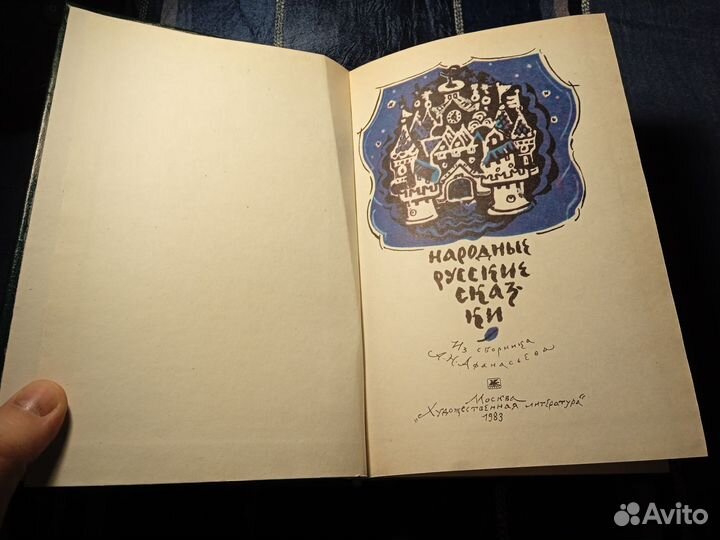 НАРОДНЫЕ
РУССКИЕ
СКАЗ-
КИ
Из сборника
А.Н.Афанасьева
Москва
„Художественная литература“
1983
Avito